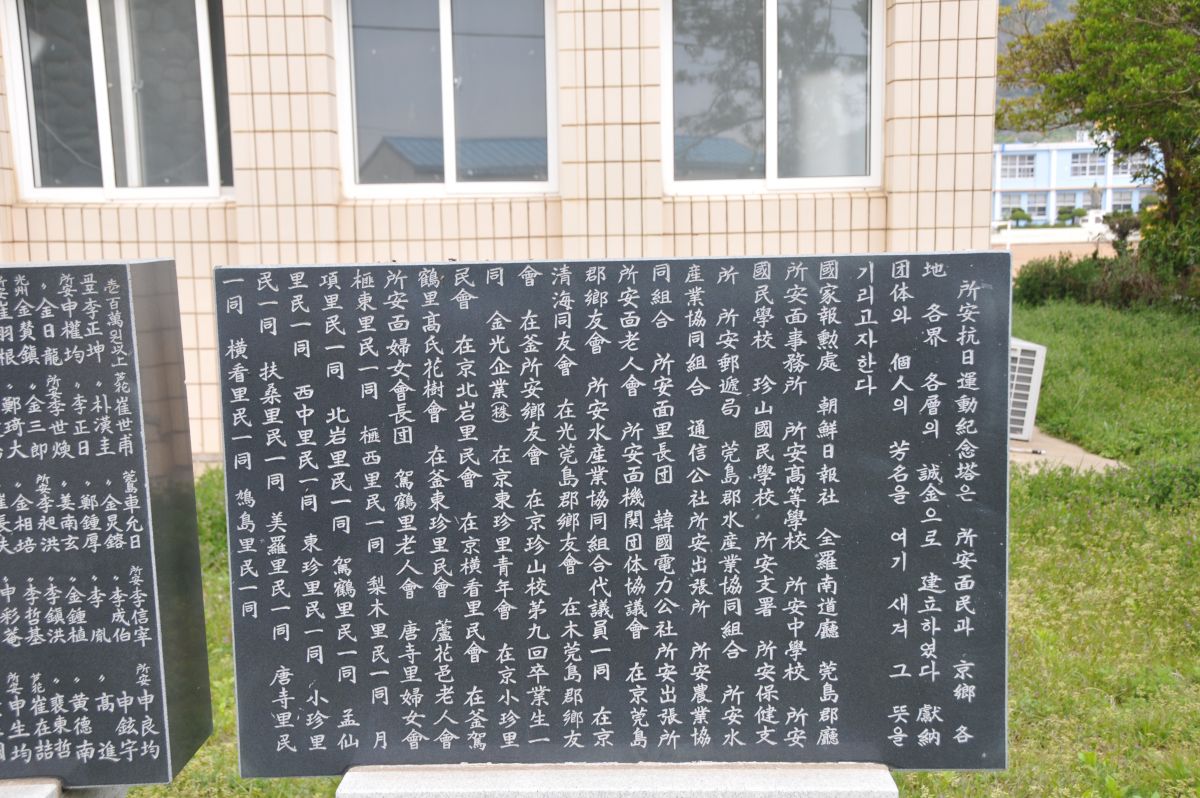 所安抗日運動紀念塔은 所安面民과 京鄕 各
地 各界 各層의 誠金으로 建立하였다 獻納
団体와 個人의 芳名을 여기 새겨 그 뜻을
기리고자한다
國家報勲處 朝鮮日報社 全羅南道廳 莞島郡廳
所安面事務所 所安高等學校 所安中學校 所安
國民學校 珍山國民學校 所安支署 所安保健支
所 所安郵遞局 莞島郡水産業協同組合 所安水
産業協同組合 通信公社所安出張所 所安農業協
同組合 所安面里長団 韓國電力公社所安出張所
所安面老人會 所安面機関団体協議會 在京莞島
郡鄕友會 所安水産業協同組合代議員一同 在京
清海同友會 在光莞島郡鄕友會 在木莞島郡鄕友
會 在釜所安鄕友會 在京珍山校第九回卒業生一
同 金光企業(株) 在京東珍里青年會 在京小珍里
民會 在京北岩里民會 在京橫看里民會 在釜駕
鶴里高氏花樹會 在釜東珍里民會 蘆花邑老人會
所安面婦女會長団 駕鶴里老人會 唐寺里婦女會
極東里民一同 極西里民一同 梨木里民一同 月
項里民一同 北岩里民一同 駕鶴里民一同 孟仙
里民一同 西中里民一同 東珍里民一同 小珍里
民一同 扶桑里民一同 美羅里民一同 唐寺里民
一同 橫看里民一同 鳩島里民一同
壱百萬원以上 芦花崔世甫 莞島車允日 所安李信宰 所安申良均
李正坤 〃朴漢主 〃金炅鎔 〃李成伯 〃申鉉宇
所安申權均 〃李正日 〃鄭鍾厚 〃李 胤 〃高 進
〃金日龍 所安李世煥 〃姜南玄 〃金鍾植 〃黃德南
光州金賛鎮 〃金三郎 所安李昶洪 〃李鎮洪 〃裵東哲
所安崔羽根 〃鄭琦大 〃金相培 〃李哲基 芦花崔在喆
〃申彩菴 所安申生均